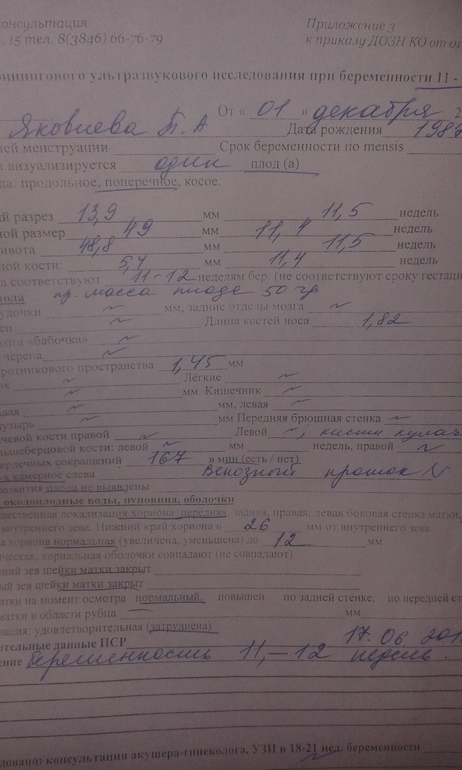 консультация Приложение 3
, 15 тел. 8(3846) 66-76-79 к приказу ДОЗН КО от
скринингового ультразвукового исследования при беременности 11 -
От « 01 » декабря 2
Яковлева Дата рождения 198
ней менструации Срок беременности по mensis
визуализируется один плод (а)
да: продольное, поперечное, косое.
ый разрез 13,9 мм 11,5 недель
ной размер 49 мм 11,4 недель
живота 48,8 мм 11,5 недель
ной кости: 5,4 мм 11,4 недель
соответствуют 11-12 неделям бер. (не соответствуют сроку гестации
пр. масса плода 50 гр
удочки ~ мм, задние отделы мозга ~
~ Длина костей носа 1,82
мозга «бабочка» ~
черепа ~
воротникового пространства 1,45 мм
~ Лёгкие ~
~ мм Кишечник ~
авая ~ мм, левая ~
узырь ~ мм Передняя брюшная стенка ~
чевой кости правой ~ Левой ~, кисти
льшеберцовой кости: левой ~ мм недель, правой ~
сердечных сокращений 167 в мин (есть / нет)
камерное слева Венозный проток N
развития плода не выявлены
околоплодные воды, пуповина, оболочки
щественная локализация хориона передняя, задняя, правая, левая боковая стенка матки,
внутреннего зева. Нижний край хориона в 26 мм от внутреннего зева.
хориона нормальная (увеличена, уменьшена) до 12 мм
ическая, хориальная оболочки совпадают (не совпадают)
ний зев шейки матки закрыт
ый зев шейки матки закрыт
атки на момент осмотра нормальный, повышен по задней стенке, по передней
матки в области рубца мм
зация: удовлетворительная (затруднена)
ительные данные ПСР 17.06 201
ение беременность 11,-12 недель
довано: консультация акушера-гинеколога, УЗИ в 18-21 нед. беременности